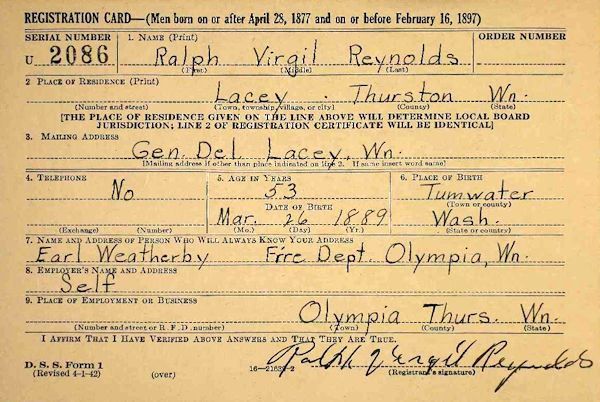 REGISTRATION CARD—(Men born on or after April 28, 1877 and on or before February 16, 1897)
SERIAL NUMBER 1. NAME (Print) ORDER NUMBER
U 2086 Ralph Virgil Reynolds
(First) (Middle) (Last)
2. PLACE OF RESIDENCE (Print)
Lacey Thurston Wn.
(Number and street) (Town, township, village, or city) (County) (State)
[THE PLACE OF RESIDENCE GIVEN ON THE LINE ABOVE WILL DETERMINE LOCAL BOARD
JURISDICTION; LINE 2 OF REGISTRATION CERTIFICATE WILL BE IDENTICAL]
3. MAILING ADDRESS
Gen. Del. Lacey, Wn.
[Mailing address if other than place indicated on line 2. If same insert word same]
4. TELEPHONE 5. AGE IN YEARS 6. PLACE OF BIRTH
No 53 Tumwater
(Town or county)
DATE OF BIRTH
Mar. 26 1889 Wash.
(Exchange) (Number) (Mo.) (Day) (Yr.) (State or country)
7. NAME AND ADDRESS OF PERSON WHO WILL ALWAYS KNOW YOUR ADDRESS
Earl Weatherby Fire Dept. Olympia, Wn.
8. EMPLOYER'S NAME AND ADDRESS
Self
9. PLACE OF EMPLOYMENT OR BUSINESS
Olympia Thurs. Wn.
(Number and street or R. F. D. number) (Town) (County) (State)
I AFFIRM THAT I HAVE VERIFIED ABOVE ANSWERS AND THAT THEY ARE TRUE.
Ralph Virgil Reynolds
D. S. S. Form 1
(Revised 4-1-42) (over) 16-21630-2 (Registrant's signature)